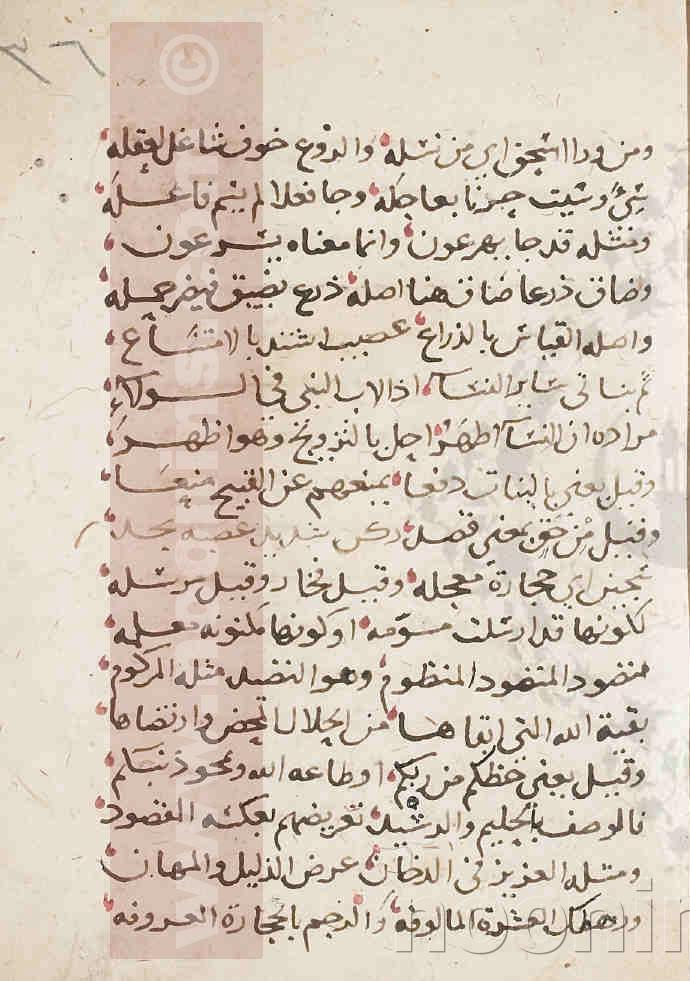 ٣٦
ومن ورا اسحق اي من نسله والروع خوف شاغل لعقله
شيء وسيت حزنا بعاجله وجا فعلا لم يتم فاعله
ومثله قد جا يهرعون وانما معناه يسرعون
وضاق ذرعا ضاق هنا اصله ذرع يضيق فيض حمله
واصله القياس بالذراع عصيب اشتد بالامتساع
ثم بناتي ساير النساء اذ الاب النبي في الولاء
مراده ان النسا اطهر احل بالتزويج وهو اظهر
وقيل يعني بالبنات دفعا يمنعهم عن القبيح منعا
وقيل من حق بمعني قصد ركن شديد عصبه
سجيل اي حجارة معجله وقيل فخار وقيل مرسله
لكونها قد ارسلت مسومه او كونها مكنونه معلمه
منضود المنضود المنظوم وهو النضيد مثله المركوم
بقية الله التي ابقاها من الحلال المحض وارتضاها
وقيل يعني حظكم من ربكم او طاعه الله ومحو ذنبكم
فالوصف بالحليم والرشيد تعريضهم بعكسه المقصود
ومثله العزيز في الدخان عرض الذليل والمهان
ورهطك العشرة المالوفه والرجم بالحجارة المعروفه
www.noorlib
noorlib